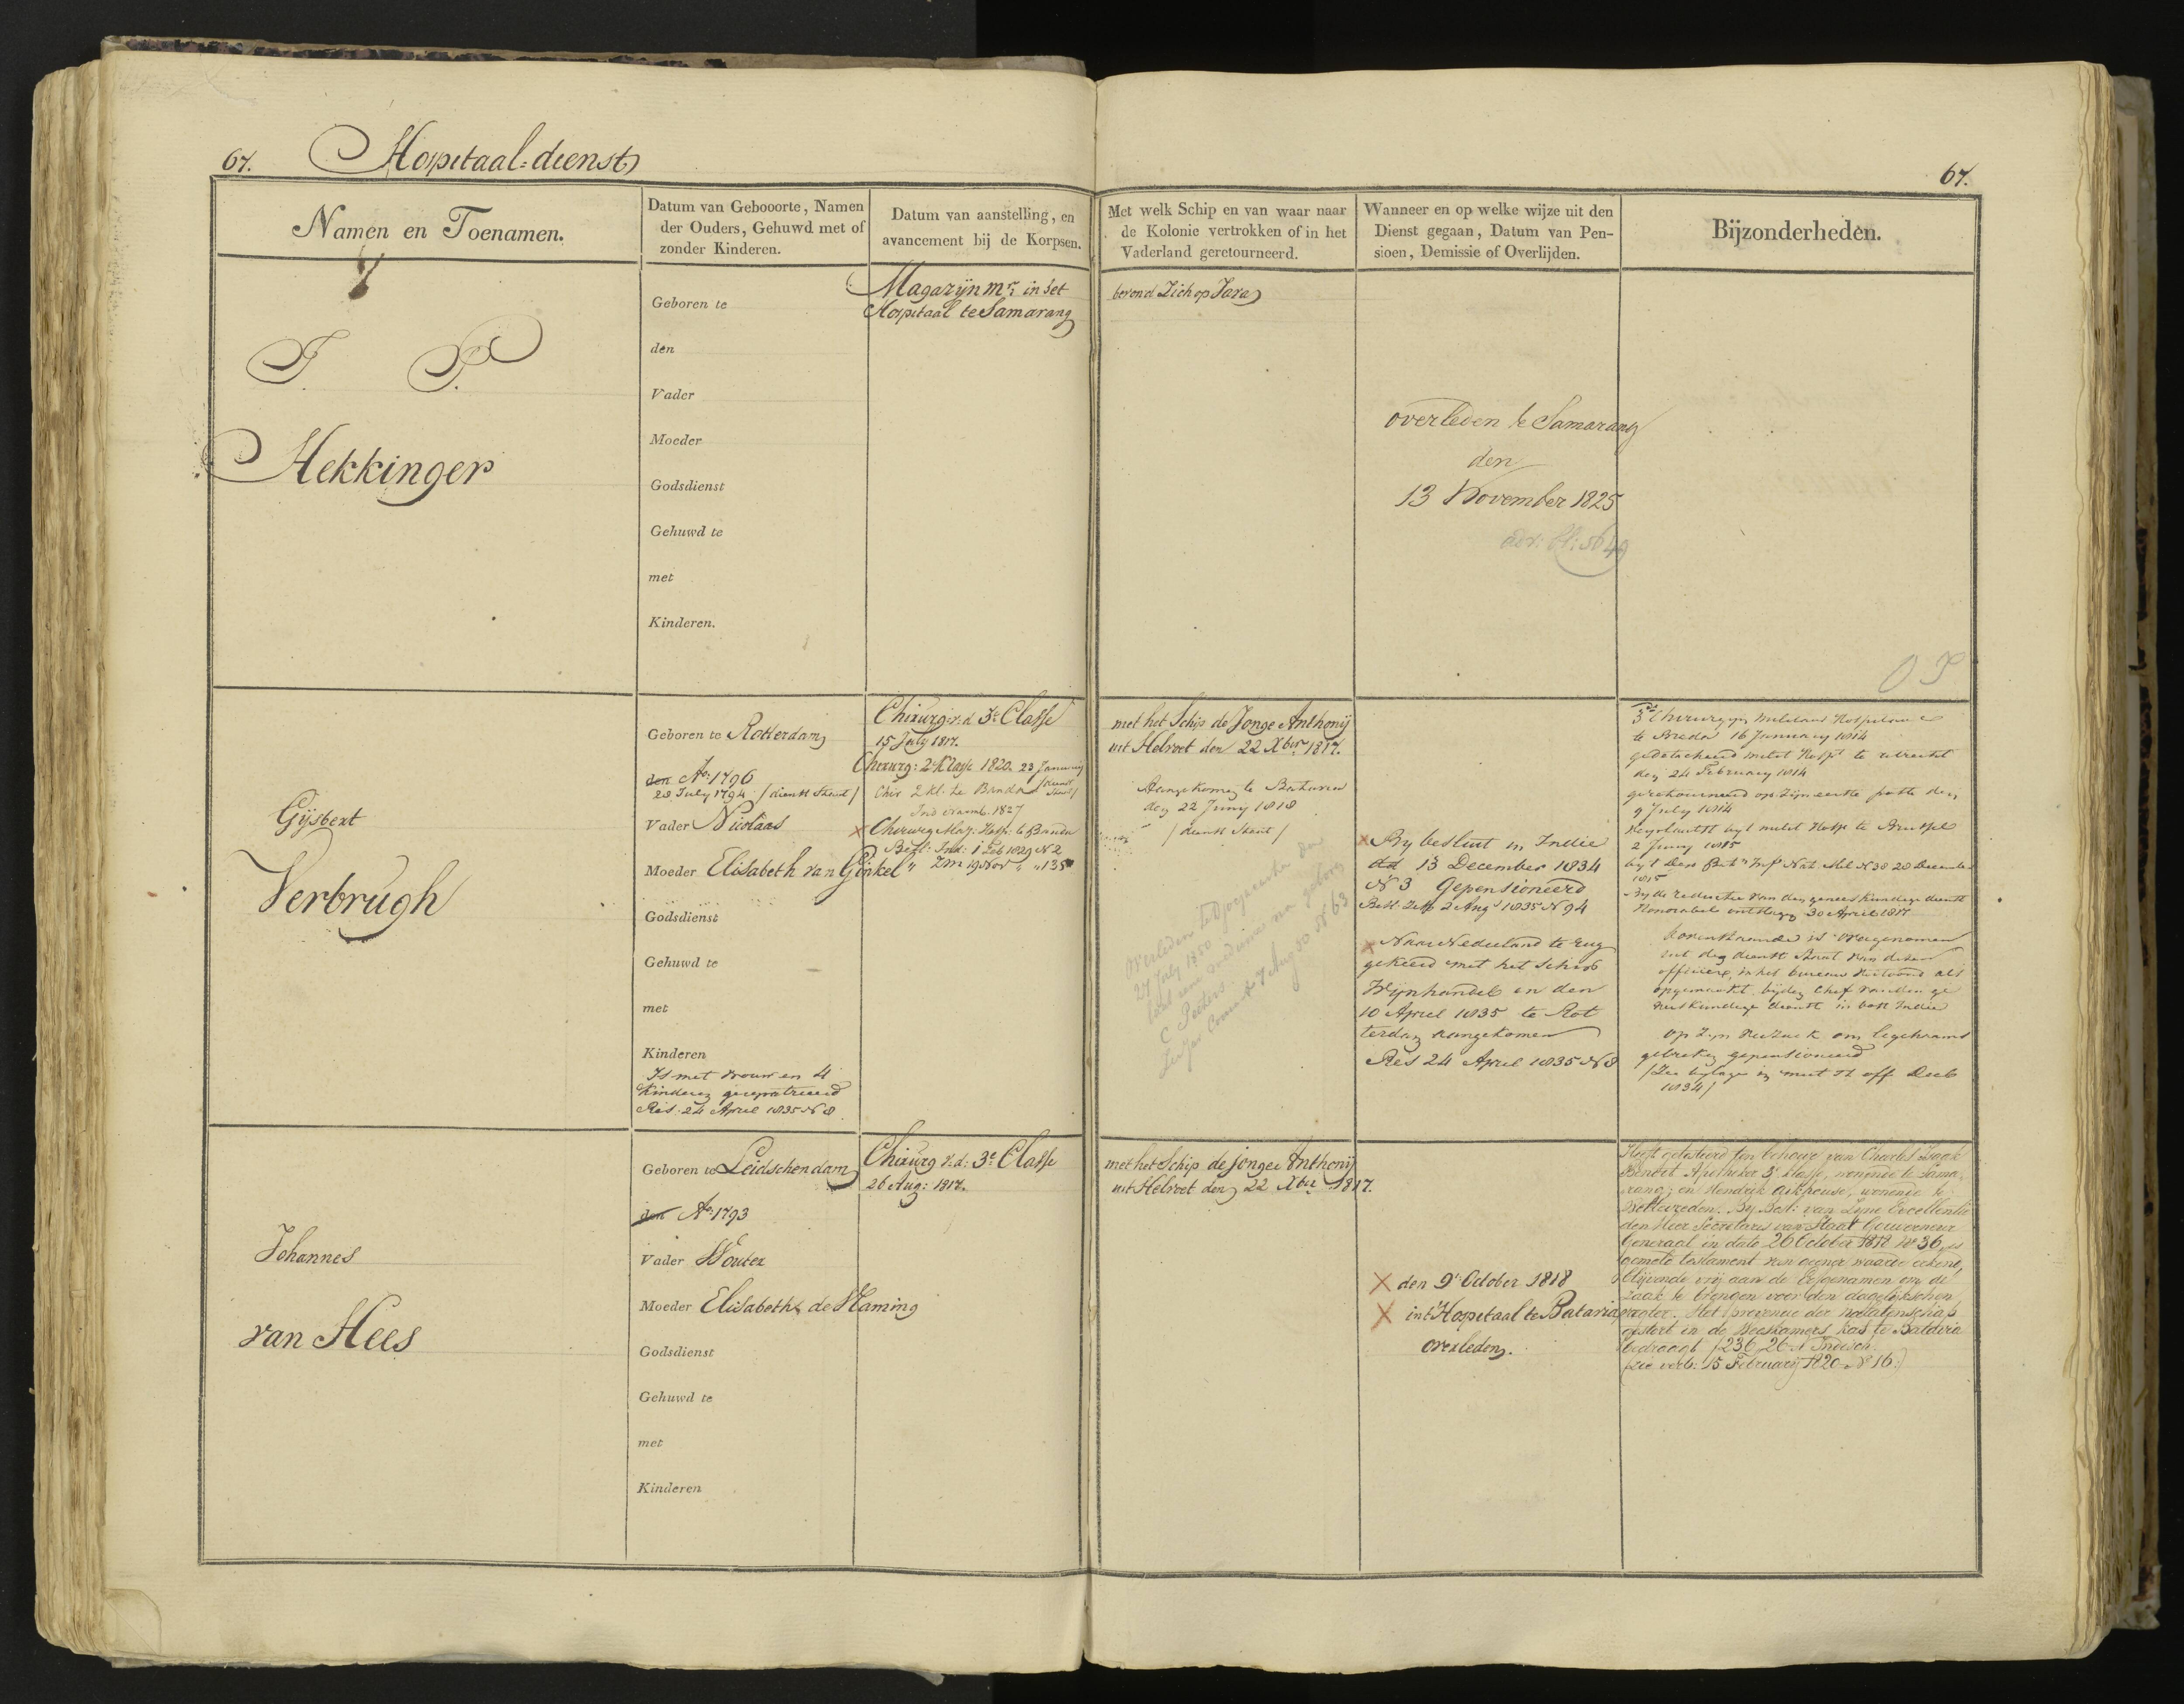 67. Hospitaal-dienst
67.
Namen en Toenamen.
Datum van Gebooorte, Namen
der Ouders, Gehuwd met of
zonder Kinderen.
Datum van aanstelling, en
avancement bij de Korpsen.
Met welk Schip en van waar naar
de Kolonie vertrokken of in het
Vaderland geretourneerd.
Wanneer en op welke wijze uit den
Dienst gegaan, Datum van Pen-
sioen, Demissie of Overlijden.
Bijzonderheden.
J. P.
Hekkinger
Geboren te
den
Vader
Moeder
Godsdienst
Gehuwd te
met
Kinderen.
Magazijn mr. in het
Hospitaal te Samarang
bevond Zich op Java
overleden te Samarang
den
13 November 1825
Gijsbert
Verbrugh
Geboren te Rotterdam
den Ao. 1796
28 July 1794 / dienst Staat /
Vader Nicolaas
Moeder Elisabeth van Ginkel
Godsdienst
Gehuwd te
met
Kinderen
Is met vrouw en 4
Kinderen gerepatrieerd
Res. 24 April 1835 No 8
Chirurg: v. d. 3e Classe
15 July 1817.
Chirurg: 2e Klasse 1820. 23 January
Chir 2 kl. te Banda
Ind Naaml. 1827
Chirurg Maj: Hosp: te Banda
Besl: Ind: 1 Feb 1829 N 2
" ZM 19 Nov " " 135
met het Schip de Jonge Anthonij
uit Helvoet den 22 Xber 1817.
Aangekomen te Batavia
den 22 Juny 1818
/ dienst Staat /
Overleden te
27 July 1850
C Peeters
7 Aug 50 N 63
By besluit in Indie
dd 13 December 1834
No 3 Gepensioneerd
Besl ZM 2 Aug 1835 N 94
Naar Nederland te rug
gekeerd met het Schip
Wijnhandel en den
10 April 1835 te Rot
terdam aangekomen
Res 24 April 1835 No 8
3e Chirurgyn Militair Hospitaal
te Breda 16 January 1814
gedetacheerd milit Hosp te Utrecht
den 24 February 1814
geretourneerd op zijn eerste poste den
9 July 1814
milit Hosp te Brussel
2 Juny 1815
Nat Mil N 30 20 December
1815
By de reductie van den geneeskundige dienst
Honorabel ontslagen 30 April 1817
bovenstaande is overgenomen
uit den dienst Staat van dezen
officier, in het bureau
opgemaakt by den Chef van den ge
neeskundige dienst in Oost Indie
op zyn verzoek om lighaams
gebreken gepensioneerd
/ Zie bylage in off Decb
1834 /
Johannes
van Hees
Geboren te Leidschendam
den Ao. 1793
Vader Wouter
Moeder Elisabeth de Vlaming
Godsdienst
Gehuwd te
met
Kinderen
Chirurg v. d: 3e Classe
26 Aug: 1817.
met het Schip de jonge Anthonij
uit Helvoet den 22 Xber 1817.
den 9e October 1818
in t Hospitaal te Batavia
overleden.
Heeft getesteerd ten behoeve van Charles Isaak
Benoot Apotheker 3e klasse, wonende te Sama-
rang, en Hendrik wonende te
Weltevreden. By Besl: van Zyne Excellentie
den Heer Secretaris van Staat Gouverneur
Generaal in dato 26 October 1818 No 36 is
gemeld testament van geener waarde erkend,
blijvende vrij aan de Erfgenamen om de
zaak te brengen voor den dagelijkschen
regter. Het provenue der nalatenschap
gestort in de Weeskamers kas te Batavia
bedraagt f 236,26 Indisch.
(zie verb: 15 February 1820 No 16.)